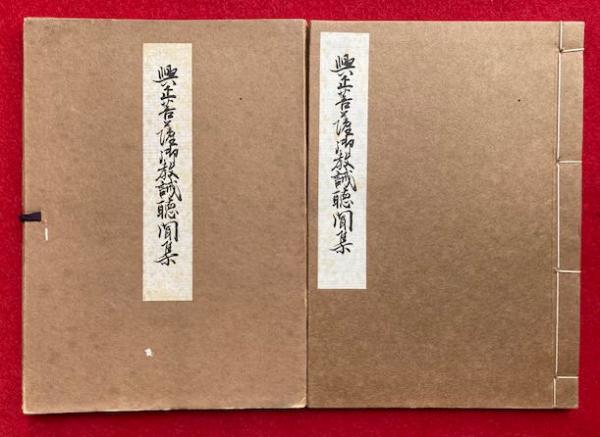 興正菩薩御教誡聴聞集
興正菩薩御教誡聴聞集